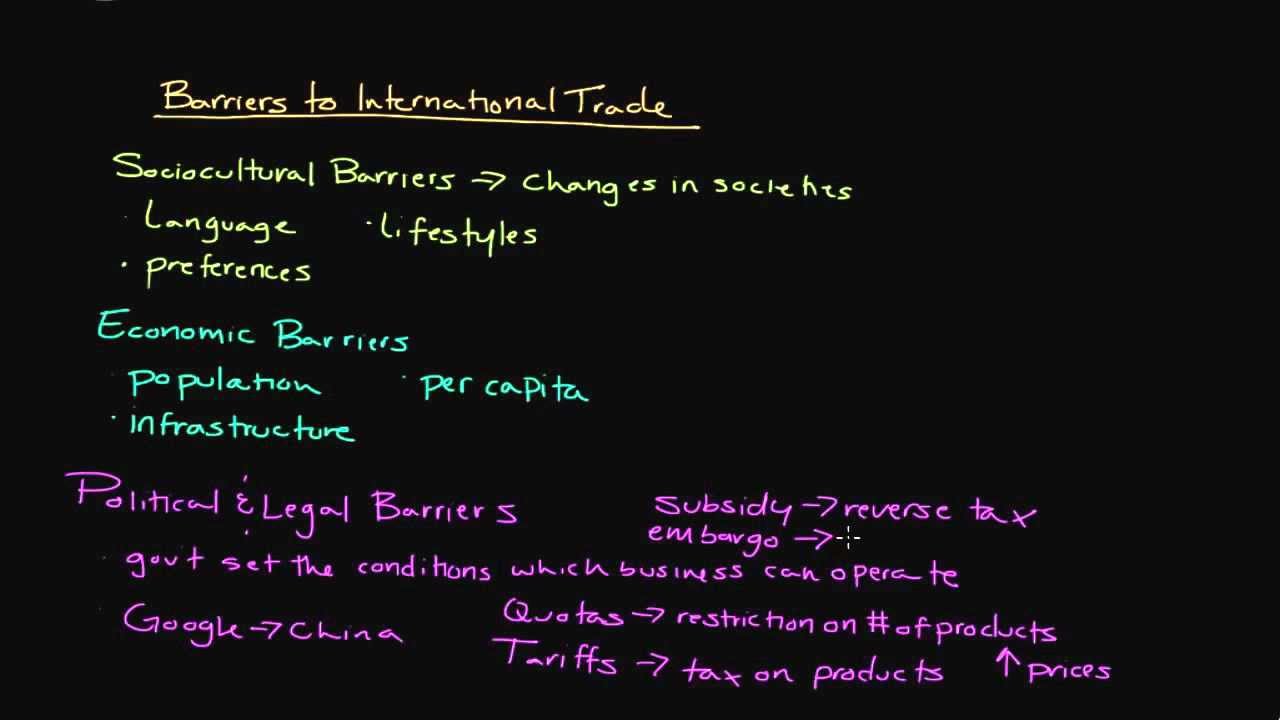 Barriers to International Trade
Sociocultural Barriers → changes in societies
· Language · lifestyles
· preferences
Economic Barriers
· population · per capita
· infrastructure
Political & Legal Barriers
subsidy → reverse tax
embargo →
· gov't set the conditions which business can operate
· Google → China
Quotas → restriction on # of products
Tariffs → tax on products ↑ prices